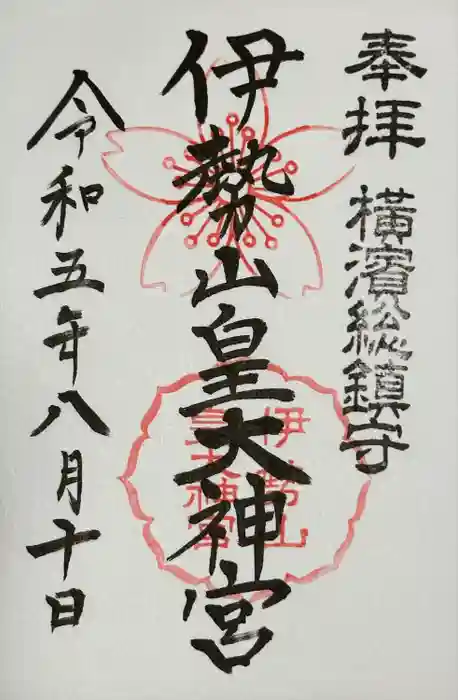 奉拝 横濱総鎮守
伊勢山皇大神宮
伊勢山
皇大神宮
令和五年八月十日